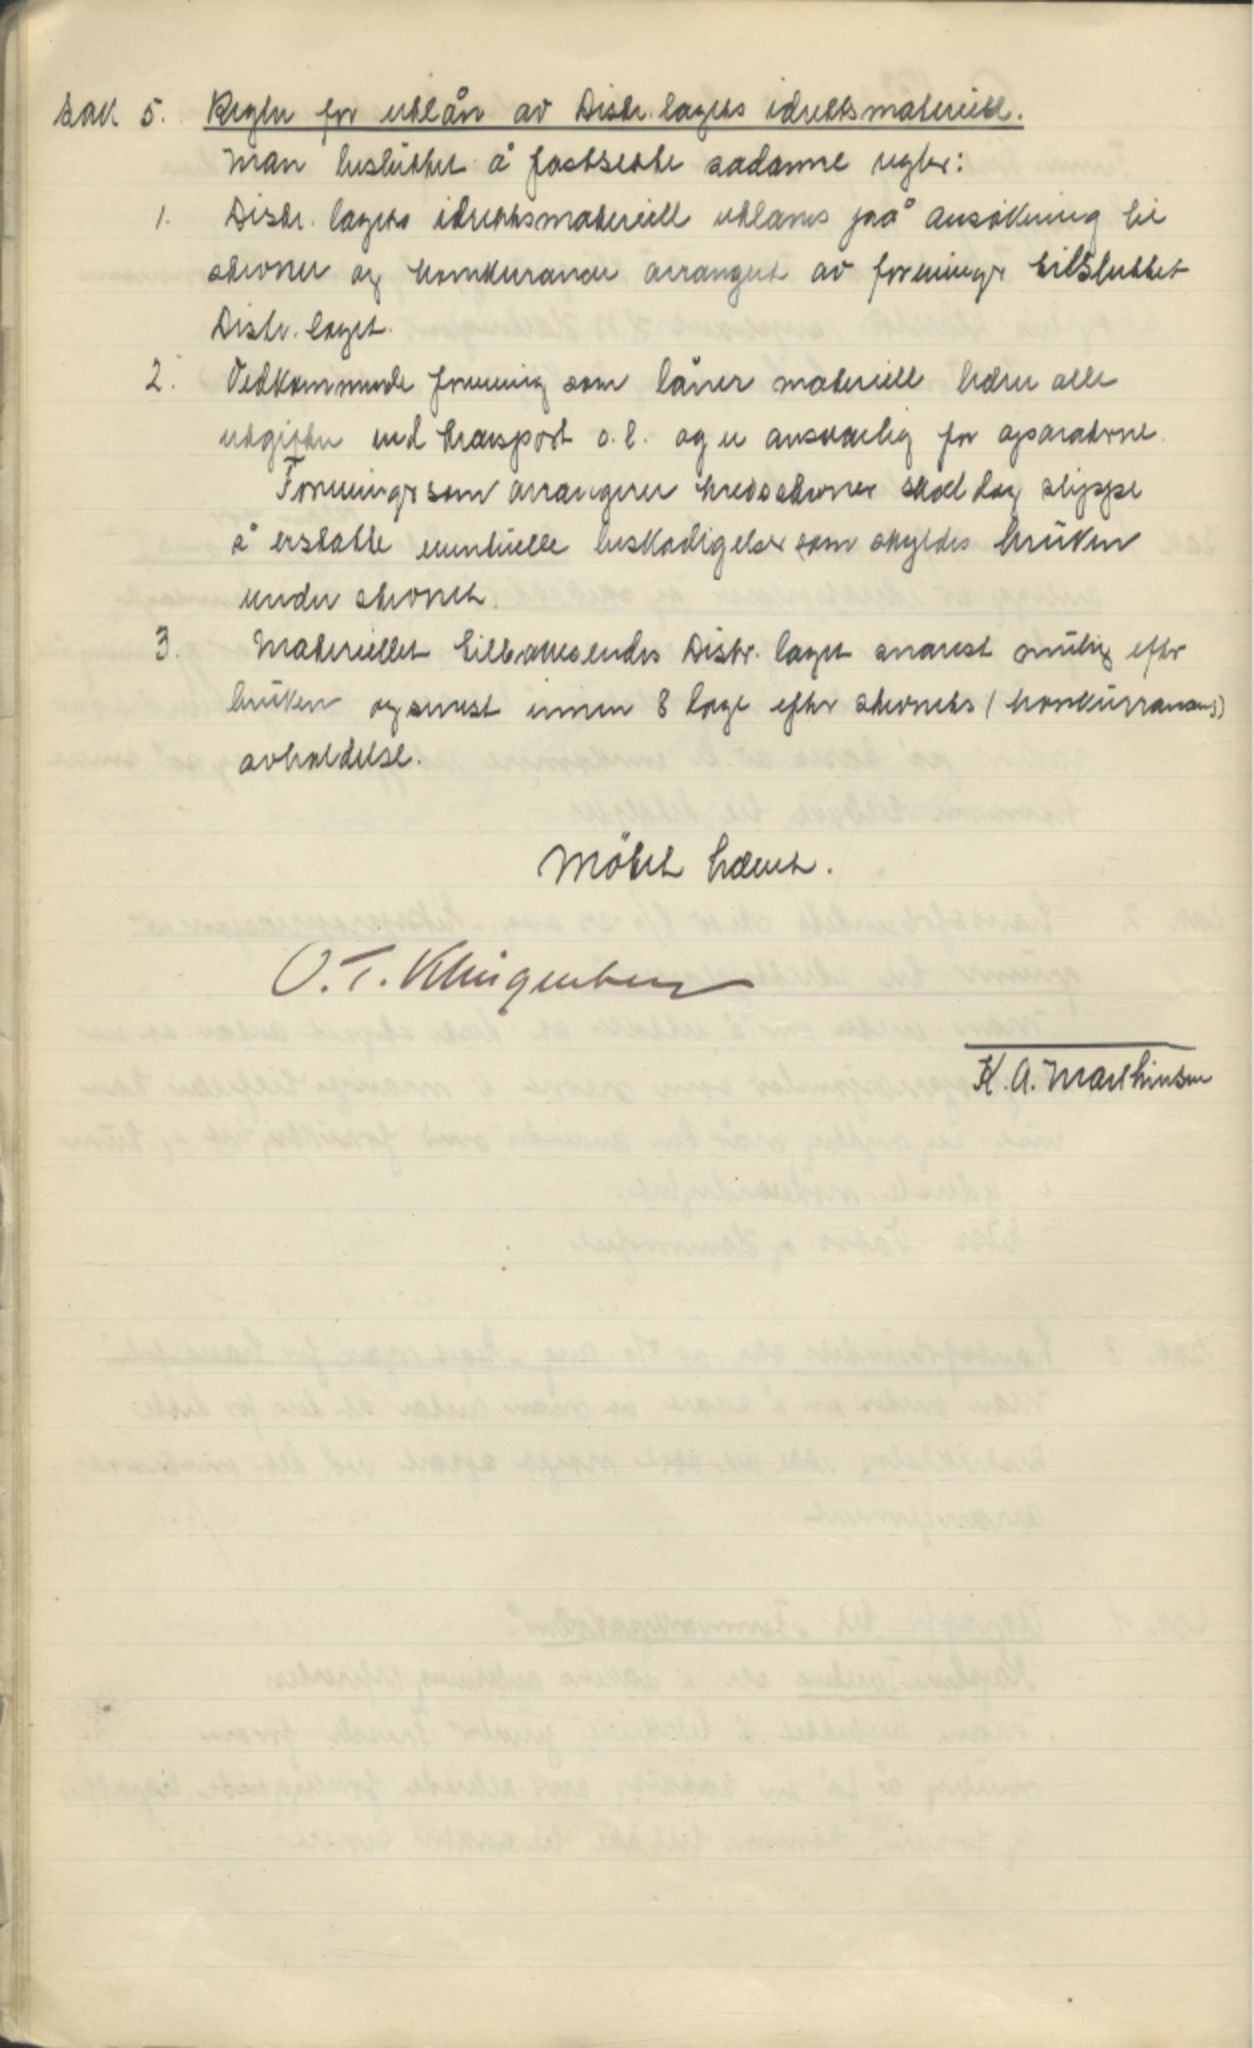 Sak 5. Regler for utlån av Distr. lagets idrettsmateriell.
Man besluttet å fastsette sådanne regler:
1. Distr. lagets idrettsmateriell utlånes på ansökning til
stevner og konkuranser arrangert av foreninger tilsluttet
Distr. laget.
2. Vedkommende forening som låner materiell bærer alle
utgifter ved transport o.l. og er ansvarlig for aparaterne.
Foreninger som arrangerer kredsstevner skal dog slippe
å erstatte eventuelle beskadigelser som skyldes bruken
under stevnet.
3. Materiellet tilbakesendes Distr. laget snarest mulig efter
bruken og senest innen 8 dage efter stevnets (konkurransens)
avholdelse.
Mötet hævet.
O. T. Klingenberg
K. A. Marthinsen